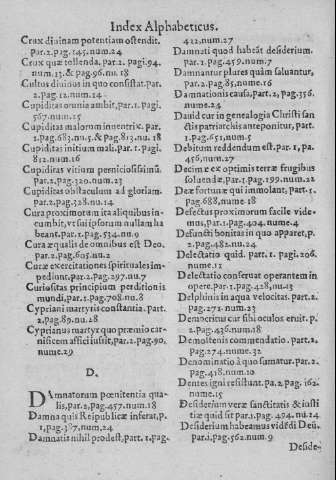 Index Alphabeticus.
Crux diuinam potentiam ostendit.
par.2.pag.145.num.24
Crux quæ tollenda. par.2. pagi.94.
num.13.& pag.96.nu.18
Cultus diuinus in quo consistat.par.
2.pag.12.num.24
Cupiditas omnia ambit, par.1. pagi.
567.num.15
Cupiditas malorum inuentrix. par.
1.pag.683.nu.5.& pag.813.nu.18
Cupiditas initium mali.par.1.pagi.
812.num.16
Cupiditas vitium perniciosissimū.
par.2.pag.320.num.23
Cupiditas obstaculum ad gloriam.
par.2.pag.328.nu.14
Cura proximorum ita aliquibus in-
cumbit, vt sui ipsorum nullam ha
beant.par.1.pag.534.nu.9
Cura æqualis de omnibus est Deo,
par.2.pag.605.nu.2
Curæ exercitationes spirituales im-
pediunt, par.2.pag.297.nu.7
Curiositas principium perditionis
mundi, par.1.pag.708.nu.8
Cypriani martyris constantia. part.
2.pag.89.nu.28
Cyprianus martyr quo præmio car-
nificem affici iussit, par.2.pag.90,
nume.29
D.
DAmnatorum pœnitentia qua-
lis, par.2, pag.457.num.18
Damna quis Reipublicæ inferat, p.
1, pag.387, num.24
Damnatis nihil prodest, part.1, pag.
412.num.27
Damnati quod habeāt desiderium.
par.1.pag.459.num.7
Damnantur plures quàm saluantur,
par.2.pag.85, nu.16
Damnationis causa, part.2, pag.356.
nume.24
Dauid cur in genealogia Christi san
ctis patriarchis anteponitur, part.
1.pag.651, num.5
Debitum reddendum est.par.1, pa.
456, num.27
Decimæ ex optimis terræ frugibus
soluendæ, par.1.pag.199.num.22
Deæ fortunæ qui immolant, part.1.
pag.688, nume.18
Defectus proximorum facile vide-
mus, par.1.pag.404.nume.4
Defuncti bonitas in quo apparet, p.
2.pag.482.nu.24
Delectatio quid. part.1. pagi.206.
nume.12
Delectatio conseruat operantem in
opere.par.1.pag.428, nu.13
Delphinis in aqua velocitas. part.2.
pag.271.num.23
Democritus cur sibi oculos eruit. p.
2.pag.436.num.18
Demoltens commendatio. part.2,
pag.274.nume.32
Denominatio à quo sumatur. par.2.
pag.418.num.10
Dentes igni resistunt. pa.2, pag.162.
nume.15
Desiderium veræ sanctitatis & iusti
tiæ quid sit par.1.pag.494.nu.14
Desiderium habeamus vidēdi Deū,
par.1, pag.562.num.9
Deside-